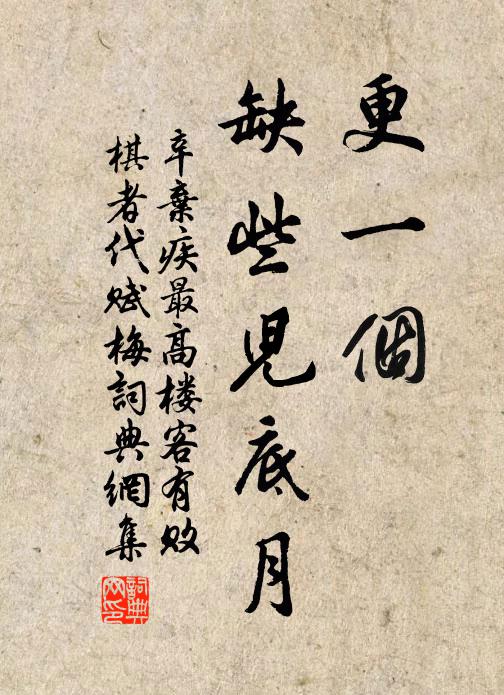 更一個
缺些兒底月
辛棄疾最高楼客有敗
棋者代赋梅詞典網集
詞典